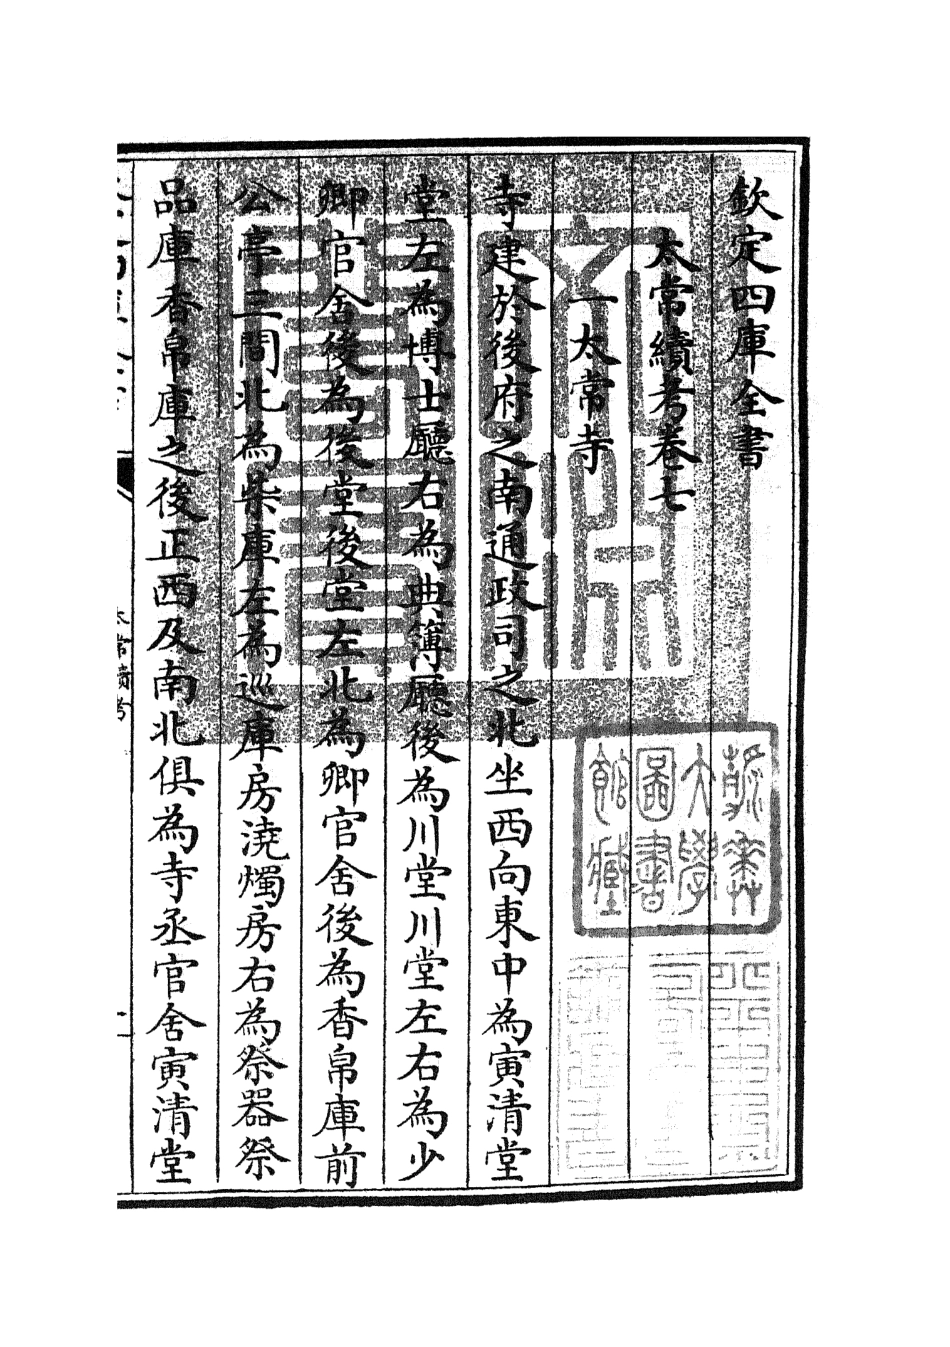 欽定四庫全書
太常續考卷七
一太常寺
寺建於後府之南通政司之北坐西向東中為寅清堂
堂左為博士廳右為典簿廳後為川堂川堂左右為少
卿官舍後為後堂後堂左北為卿官舍後為香帛庫前
公亭三間北為柴庫左為巡庫房澆燭房右為祭器祭
品庫香帛庫之後正西及南北俱為寺丞官舍寅清堂
太常續考